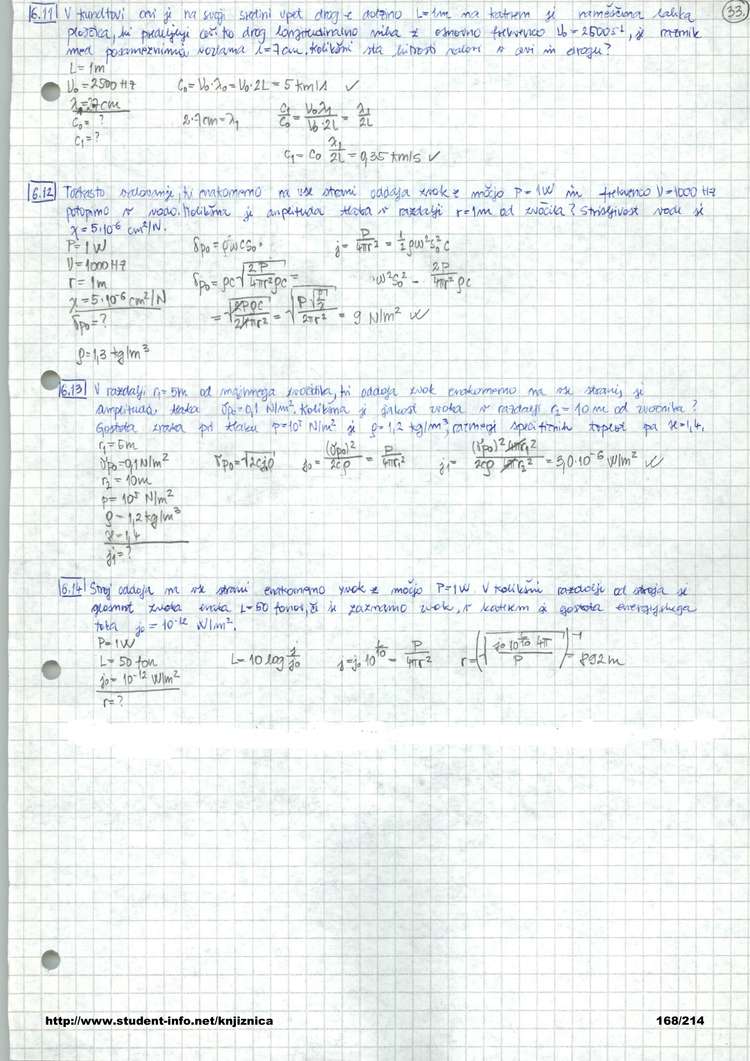 33.
6.11 V kundtovi cevi je na svoji sredini vpet drog z dolžino L=1m na katrem je nameščena lahka
ploščica, ki predeljuje cev. to drog longitudinalno niha z osnovno frekvenco ν₀=2500s⁻¹, je razmik
med posameznimi vozlama l=7cm. Kolikšni sta hitrosti valov v cevi in drogu?
L=1m
ν₀=2500Hz C₀=ν₀·λ₀=ν₀·2L=5 km/s ✓
λ₁=7cm
C₀=? 2·7cm=λ₁ C₁/C₀=ν₀λ₁/ν₀·2L=λ₁/2L
C₁=?
C₁=C₀ λ₁/2L=0,35 km/s ✓
6.12 Točkasto zvočilo, ki enakomerno na vse strani oddaja zvok z močjo P=1W in frekvenco ν=1000Hz
potopimo v vodo. Kolikšna je amplituda tlaka v razdalji r=1m od zvočila? Stisljivost vode je
χ=5·10⁻⁶ cm²/N.
P=1W δp₀=ρωcs₀. j=P/4πr²=1/2 ρω²s₀²c
ν=1000Hz
r=1m δp₀=ρc√(2P/4πr²ρc)= ω²s₀²=2P/4πr²ρc
χ=5·10⁻⁶ cm²/N
δp₀=? =√(2Pρc/24πr²)=√(P√(ρ/χ)/2πr²)=9 N/m² ✓
ρ=1,3 kg/m³
6.13 V razdalji r₁=5m od majhnega zvočnika, ki oddaja zvok enakomerno na vse strani, je
amplituda tlaka δp₀=0,1 N/m². Kolikšna je jakost zvoka v razdalji r₂=10m od zvočnika?
Gostota zraka pri tlaku p=10⁵ N/m² je ρ=1,2 kg/m³, razmerje specifičnih toplot pa κ=1,4.
r₁=5m
δp₀=0,1N/m² δp₀=√(2cjρ) j₀=(δp₀)²/2cρ=P/4πr₁² j₁=(δp₀)²4πr₁²/2cρ4πr₂²=3,0·10⁻⁶ W/m² ✓
r₂=10m
p=10⁵ N/m²
ρ=1,2kg/m³
κ=1,4
j₁=?
6.14 Stroj oddaja na vse strani enakomerno zvok z močjo P=1W V kolikšni razdalji od stroja je
glasnost zvoka enaka L=50 fonov, če še zaznamo zvok, v katrem je gostota energijskega
toka j₀=10⁻¹² W/m².
P=1W
L=50 fon L=10 log j/j₀ j=j₀10^(L/10)=P/4πr² r=(√(j₀10^(L/10) 4π/P))⁻¹=892m
j₀=10⁻¹² W/m²
r=?
http://www.student-info.net/knjiznica
168/214